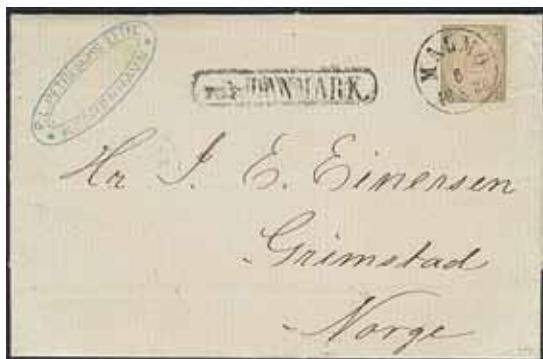 KJØBENHAVN
DANMARK.
MALMÖ
6
Hr J. E. Einersen
Grimstad
Norge